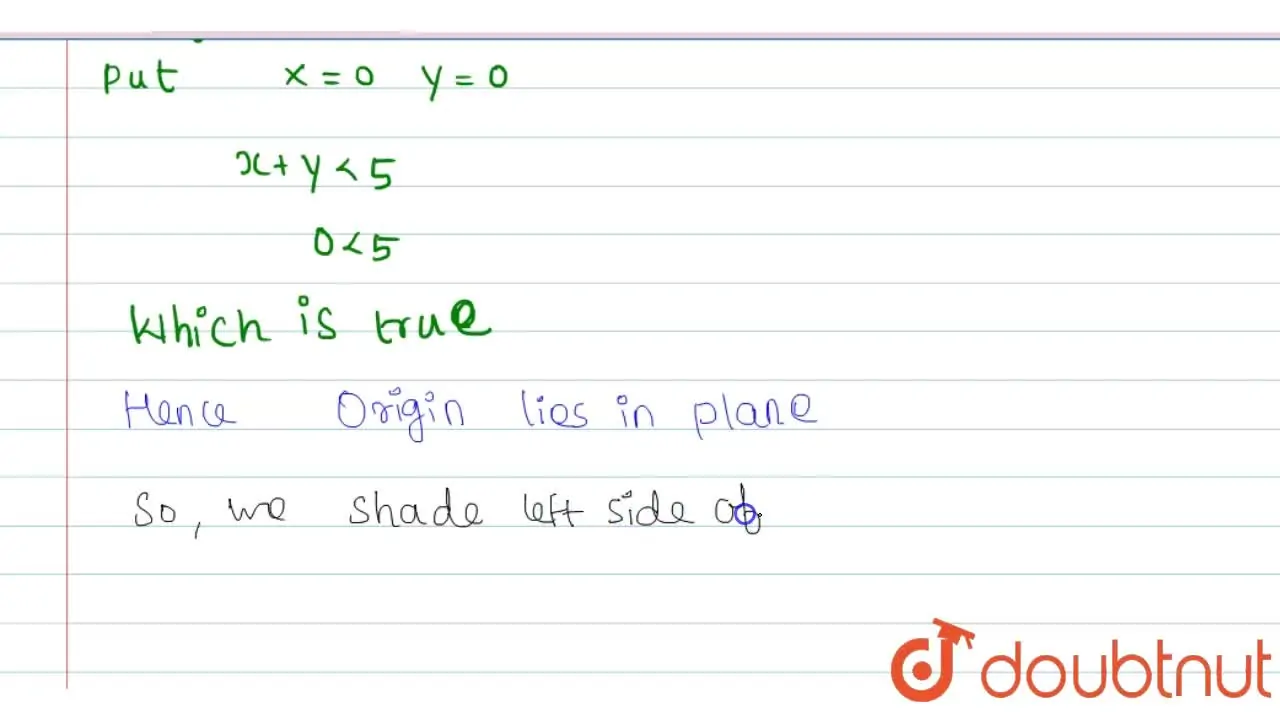 put x = 0 y = 0
x + y < 5
0 < 5
Which is true
Hence Origin lies in plane
So, we shade left side of
doubtnut